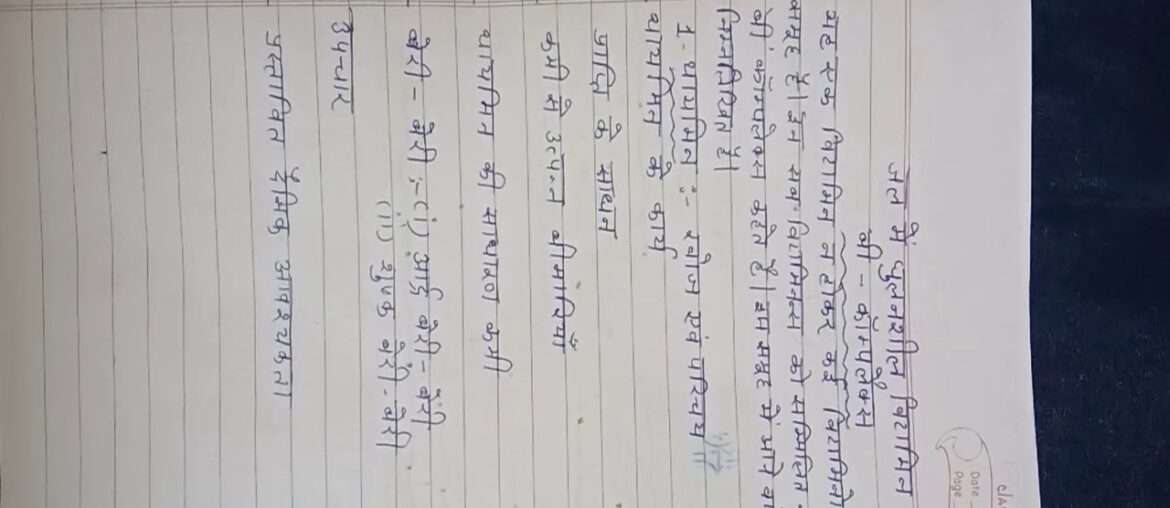 c/A
Date
Page
जल में घुलनशील विटामिन
बी - कॉम्पलेक्स
यह एक विटामिन न होकर कई विटामिनो
समूह है। इन सब विटामिन्स को सम्मिलित
बी कॉम्पलेक्स कहते है। इस समूह में आने वा
निम्नलिखित है।
1- थायमिन :- खोज एवं परिचय
थायमिन के कार्य
प्राप्ति के साधन
कमी से उत्पन्न बीमारियाँ
थायमिन की साधारण कमी
बेरी - बेरी :- (i) आर्द्र बेरी - बेरी
(ii) शुष्क बेरी - बेरी
उपचार
प्रस्तावित दैनिक आवश्यकता